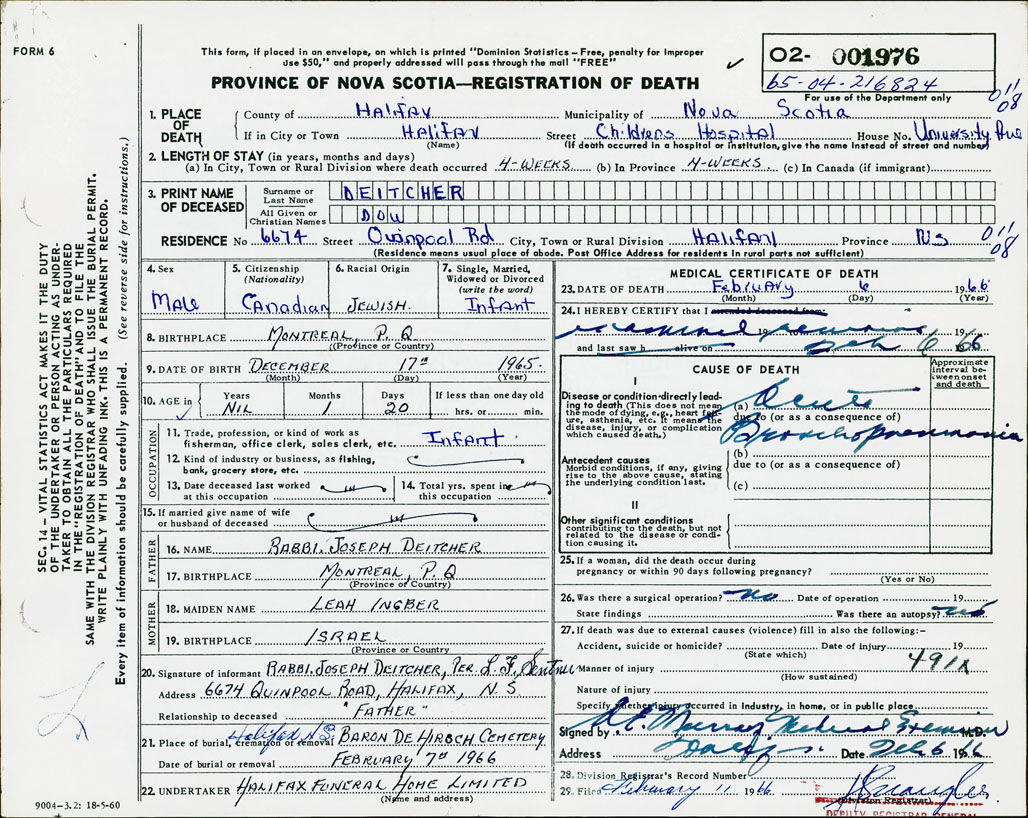 FORM 6
This form, if placed in an envelope, on which is printed "Dominion Statistics – Free, penalty for improper
use $50," and properly addressed will pass through the mail "FREE"
PROVINCE OF NOVA SCOTIA—REGISTRATION OF DEATH
02- 001976
65-04-216824
For use of the Department only
011
08
1. PLACE OF DEATH
County of HALIFAX Municipality of NOVA SCOTIA
If in City or Town HALIFAX Street Childrens Hospital House No. University Ave
(Name) (If death occurred in a hospital or institution, give the name instead of street and number)
2. LENGTH OF STAY (in years, months and days)
(a) In City, Town or Rural Division where death occurred 4-WEEKS (b) In Province 4-WEEKS (c) In Canada (if immigrant)
3. PRINT NAME OF DECEASED
Surname or Last Name DEITCHER
All Given or Christian Names DOU
RESIDENCE No 6674 Street Quinpool Rd City, Town or Rural Division HALIFAX Province N.S
011
08
(Residence means usual place of abode. Post Office Address for residents in rural parts not sufficient)
4. Sex
MALE
5. Citizenship
(Nationality)
Canadian
6. Racial Origin
JEWISH.
7. Single, Married, Widowed or Divorced
(write the word)
Infant
8. BIRTHPLACE MONTREAL, P. Q
(Province or Country)
9. DATE OF BIRTH DECEMBER 17th 1965.
(Month) (Day) (Year)
10. AGE in
Years Months Days If less than one day old
NIL 1 20 hrs. or min.
OCCUPATION
11. Trade, profession, or kind of work as
fisherman, office clerk, sales clerk, etc. Infant
12. Kind of industry or business, as fishing,
bank, grocery store, etc.
13. Date deceased last worked
at this occupation
14. Total yrs. spent in
this occupation
15. If married give name of wife
or husband of deceased
FATHER
16. NAME RABBI. JOSEPH DEITCHER
17. BIRTHPLACE MONTREAL, P. Q
(Province or Country)
MOTHER
18. MAIDEN NAME LEAH INGBER
19. BIRTHPLACE ISRAEL
(Province or Country)
20. Signature of informant RABBI. JOSEPH DEITCHER, PER. L. F. Sentner
Address 6674 QUINPOOL ROAD, HALIFAX, N. S
Relationship to deceased "FATHER"
Halifax N.S.
21. Place of burial, cremation or removal BARON DE HIRSCH CEMETERY
Date of burial or removal FEBRUARY 7th 1966
22. UNDERTAKER HALIFAX FUNERAL HOME LIMITED
(Name and address)
9004–3.2: 18-5-60
MEDICAL CERTIFICATE OF DEATH
23. DATE OF DEATH February 6 1966
(Month) (Day) (Year)
24. I HEREBY CERTIFY that I attended deceased from:
examined remains
19 19
and last saw h alive on Feb 6 1966
CAUSE OF DEATH
Approximate interval between onset and death
I
Disease or condition directly leading to death (This does not mean the mode of dying, e.g., heart failure, asthenia, etc. It means the disease, injury, or complication which caused death.)
(a) Acute
due to (or as a consequence of)
Bronchopneumonia
Antecedent causes
Morbid conditions, if any, giving rise to the above cause, stating the underlying condition last.
(b)
due to (or as a consequence of)
(c)
II
Other significant conditions
contributing to the death, but not related to the disease or condition causing it.
25. If a woman, did the death occur during
pregnancy or within 90 days following pregnancy?
(Yes or No)
26. Was there a surgical operation? no Date of operation 19
State findings Was there an autopsy? no
27. If death was due to external causes (violence) fill in also the following:–
Accident, suicide or homicide? Date of injury 19
(State which)
491X
Manner of injury
(How sustained)
Nature of injury
Specify whether injury occurred in industry, in home, or in public place
Signed by Murray, Medical Examiner M.D.
Address Halifax Date Feb 6 1966
28. Division Registrar's Record Number
29. Filed February 11 1966
(Division Registrar)
DEPUTY REGISTRAR GENERAL
SEC. 14 – VITAL STATISTICS ACT MAKES IT THE DUTY
OF THE UNDERTAKER OR PERSON ACTING AS UNDER-
TAKER TO OBTAIN ALL THE PARTICULARS REQUIRED
IN THE "REGISTRATION OF DEATH" AND TO FILE THE
SAME WITH THE DIVISION REGISTRAR WHO SHALL ISSUE THE BURIAL PERMIT.
WRITE PLAINLY WITH UNFADING INK. THIS IS A PERMANENT RECORD.
Every item of information should be carefully supplied. (See reverse side for instructions.)